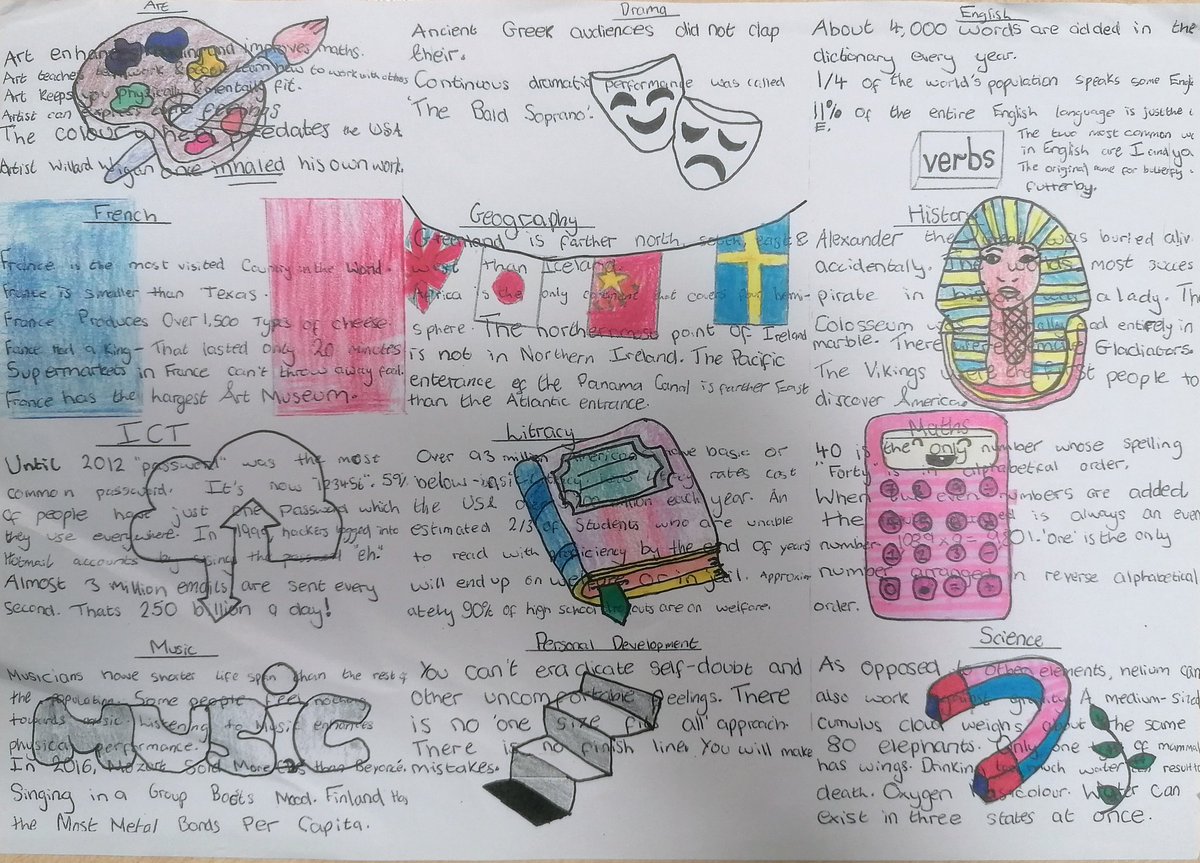 Art
Art enhances and improves maths.
Art teaches teamwork & how to work with others
Art Keeps you physically & mentally fit.
Artist can express feelings
The colour wheel predates the USA
Artist Willard Wigan once inhaled his own work.
Drama
Ancient Greek audiences did not clap
their.
Continuous dramatic performance was called
'The Bald Soprano'.
English
About 4,000 words are added in the
dictionary every year.
1/4 of the world's population speaks some Engl
11% of the entire English language is just the
E.
verbs
The two most common wo
in English are I and you
The original name for butterfly
flutterby.
French
France is the most visited Country in the World.
France is smaller than Texas.
France Produces Over 1,500 Types of cheese
France had a King - That lasted only 20 minutes
Supermarkets in France can't throw away food.
France has the largest Art Museum.
Geography
Greenland is farther north, south, east &
west than Iceland.
Africa is the only continent that covers four hemi-
sphere. The northern most point of Ireland
is not in Northern Ireland. The Pacific
enterance of the Panama Canal is farther East
than the Atlantic entrance.
History
Alexander the was buried aliv
accidentally. The worlds most succes
pirate in history was a lady. The
Colosseum was entirely in
marble. There were Gladiators.
The Vikings were the first people to
discover America.
ICT
Until 2012 "password" was the most
common password. It's now "123456". 59%
of people have just one Password which
they use everywhere. In 1999, hackers logged into
Hotmail accounts by using the password "eh."
Almost 3 million emails are sent every
second. Thats 250 billion a day!
Litracy
Over 93 million Americans have basic or
below rates cost
the USA each year. An
estimated 2/3 of Students who are unable
to read with proficiency by the end of years
will end up on welfare or in jail. Approxim
ately 90% of high school dropouts are on welfare.
Maths
40 is the only number whose spelling
"Forty" is in alphabetical order.
When two even numbers are added
the is always an even
number. 1089 x 9 = 9801. 'one' is the only
number arranged in reverse alphabetical
order.
Music
Musicians have shorter life span than the rest of
the population. Some people feel nothing
towards music. Listening to Music enhances
physical performance.
In 2016, Mozart Sold More CDs than Beyoncé.
Singing in a Group Boosts Mood. Finland Has
the Most Metal Bands Per Capita.
music
Personal Development
You can't eradicate self-doubt and
other uncomfortable feelings. There
is no 'one size fits all' approach.
There is no finish line. You will make
mistakes.
Science
As opposed to other elements, helium can
also work against gravity. A medium-sized
cumulus cloud weighs about the same
80 elephants. Only one type of mammal
has wings. Drinking too much water can result to
death. Oxygen has colour. Water can
exist in three states at once.